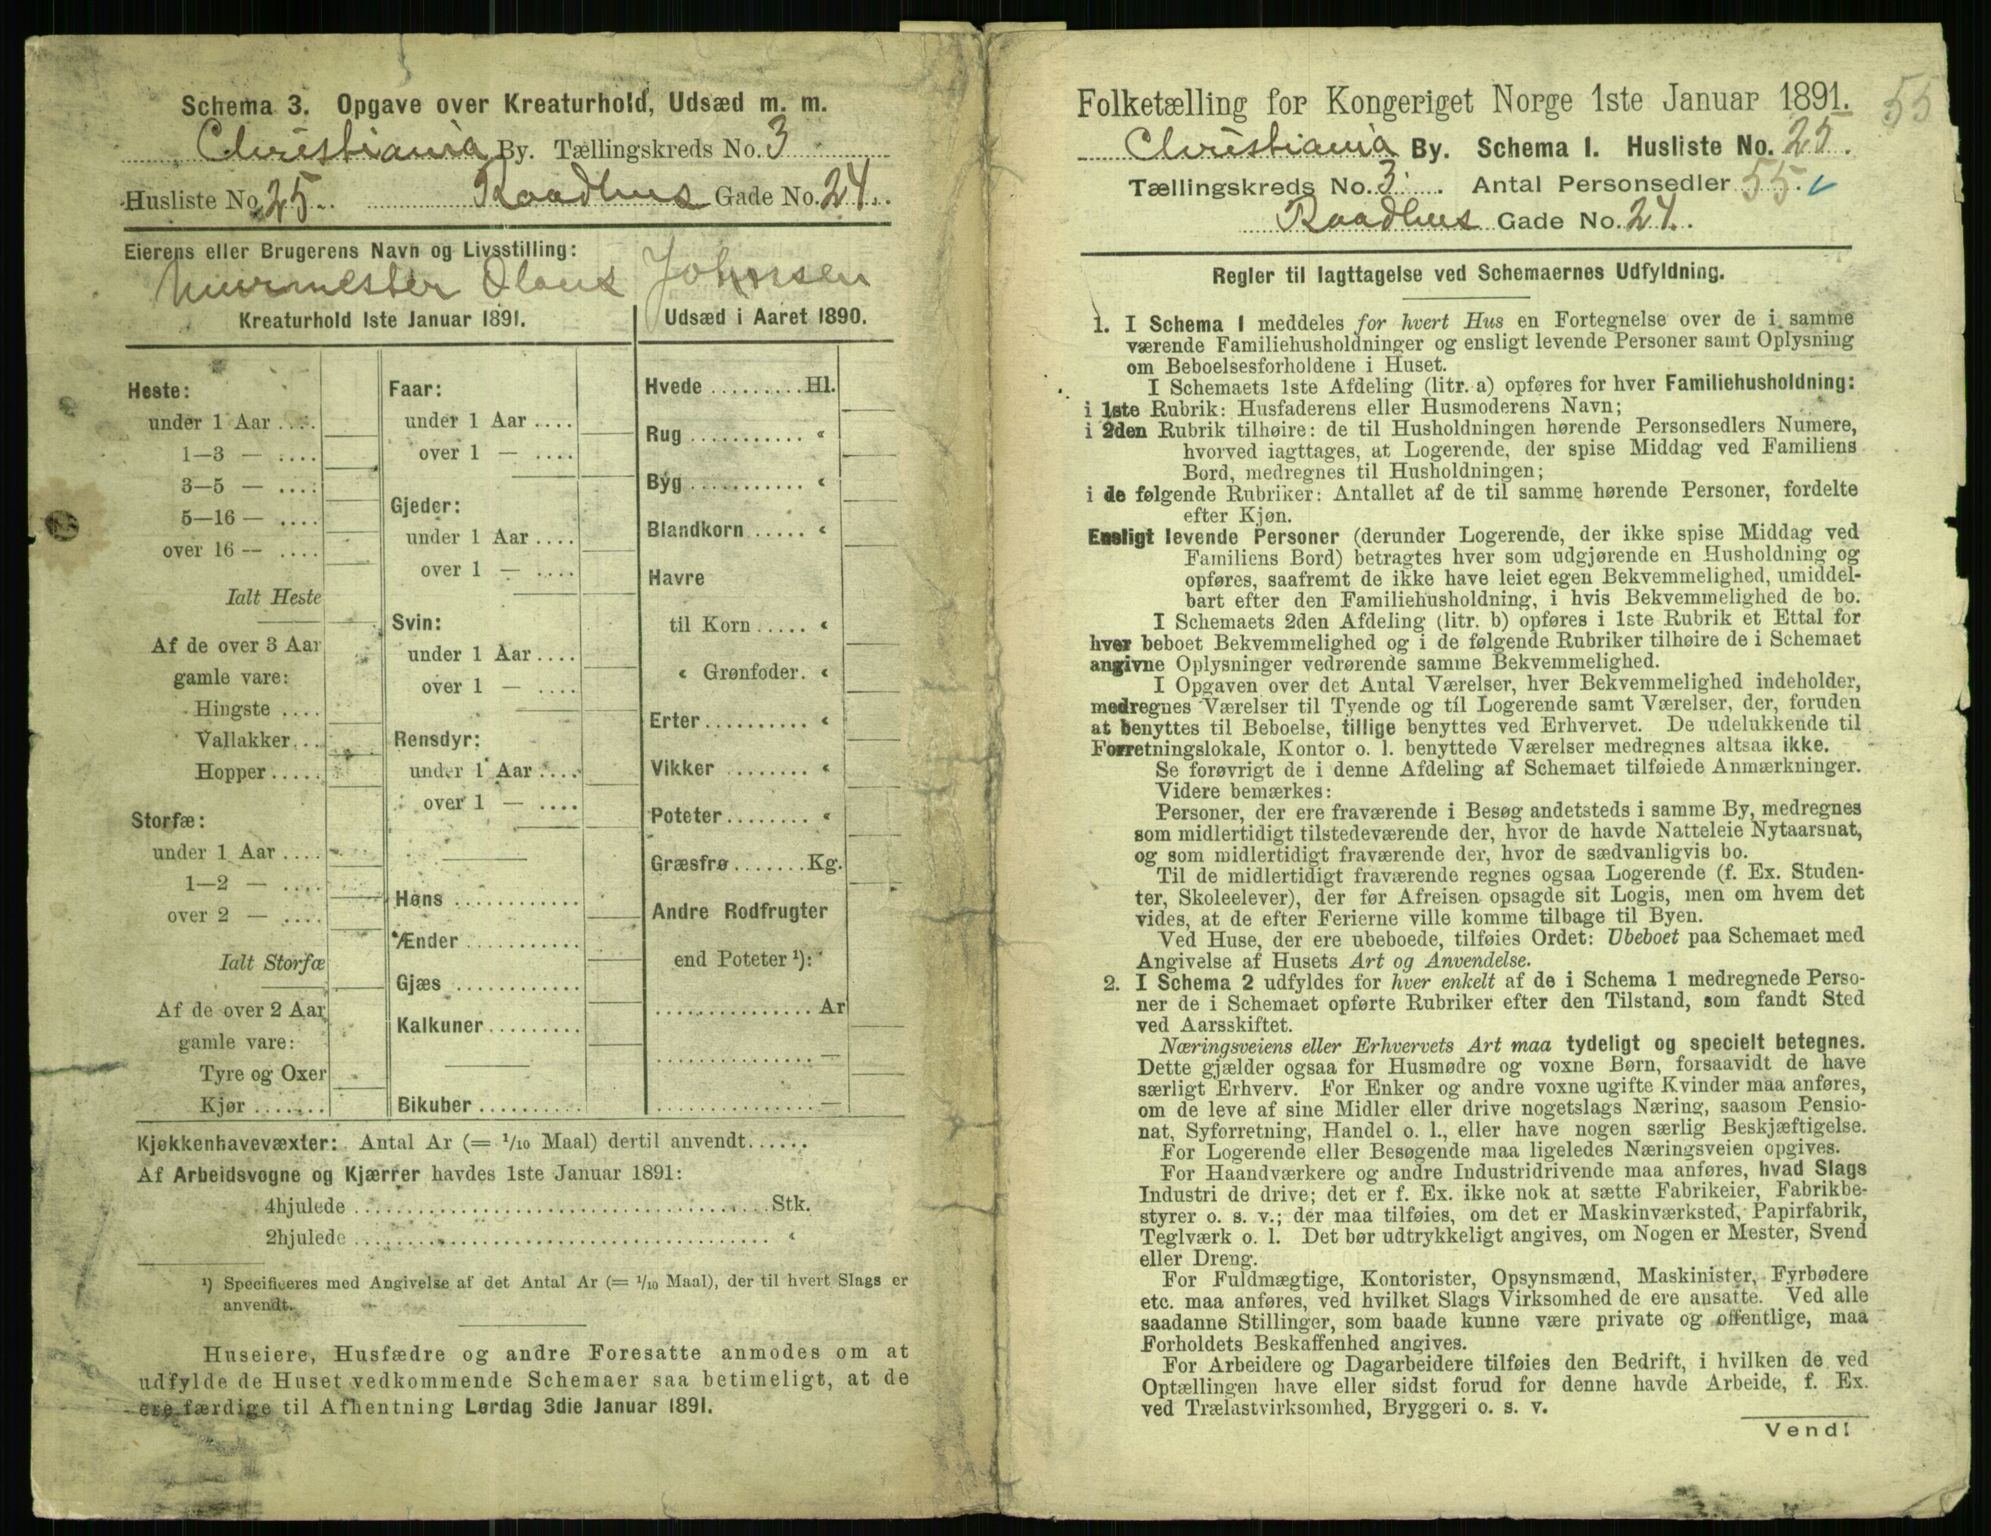 Schema 3. Opgave over Kreaturhold, Udsæd m. m.
Christiania By. Tællingskreds No. 3
Husliste No. 25. Raadhus Gade No. 24.
Eierens eller Brugerens Navn og Livsstilling:
Murmester Olaus Johnsen
Kreaturhold 1ste Januar 1891.
Heste:
under 1 Aar ....
1—3 — ....
3—5 — ....
5—16 — ....
over 16 — ....
Ialt Heste
Af de over 3 Aar
gamle vare:
Hingste ....
Vallakker...
Hopper.....
Storfæ:
under 1 Aar ....
1—2 — ....
over 2 — ....
Ialt Storfæ
Af de over 2 Aar
gamle vare:
Tyre og Oxer
Kjør .......
Faar:
under 1 Aar ....
over 1 — ....
Gjeder:
under 1 Aar ....
over 1 — ....
Svin:
under 1 Aar....
over 1 — ....
Rensdyr:
under 1 Aar ....
over 1 — ....
Høns ............
Ænder ...........
Gjæs ............
Kalkuner.........
Bikuber ..........
Udsæd i Aaret 1890.
Hvede .........Hl.
Rug .......... «
Byg .......... «
Blandkorn ..... «
Havre
til Korn ..... «
« Grønfoder. «
Erter.......... «
Vikker ........ «
Poteter........ «
Græsfrø .......Kg.
Andre Rodfrugter
end Poteter ¹):
............... Ar
............... —
............... —
Kjøkkenhavevæxter: Antal Ar (= 1/10 Maal) dertil anvendt......
Af Arbeidsvogne og Kjærrer havdes 1ste Januar 1891:
4hjulede .......................................Stk.
2hjulede ....................................... «
¹) Specificeres med Angivelse af det Antal Ar (= 1/10 Maal), der til hvert Slags er
anvendt.
Huseiere, Husfædre og andre Foresatte anmodes om at
udfylde de Huset vedkommende Schemaer saa betimeligt, at de
ere færdige til Afhentning Lørdag 3die Januar 1891.
Folketælling for Kongeriget Norge 1ste Januar 1891. 55
Christiania By. Schema 1. Husliste No. 25.
Tællingskreds No. 3. Antal Personsedler 55.
Raadhus Gade No. 24.
Regler til Iagttagelse ved Schemaernes Udfyldning.
1. I Schema 1 meddeles for hvert Hus en Fortegnelse over de i samme
værende Familiehusholdninger og ensligt levende Personer samt Oplysning
om Beboelsesforholdene i Huset.
I Schemaets 1ste Afdeling (litr. a) opføres for hver Familiehusholdning:
i 1ste Rubrik: Husfaderens eller Husmoderens Navn;
i 2den Rubrik tilhøire: de til Husholdningen hørende Personsedlers Numere,
hvorved iagttages, at Logerende, der spise Middag ved Familiens
Bord, medregnes til Husholdningen;
i de følgende Rubriker: Antallet af de til samme hørende Personer, fordelte
efter Kjøn.
Ensligt levende Personer (derunder Logerende, der ikke spise Middag ved
Familiens Bord) betragtes hver som udgjørende en Husholdning og
opføres, saafremt de ikke have leiet egen Bekvemmelighed, umiddel-
bart efter den Familiehusholdning, i hvis Bekvemmelighed de bo.
I Schemaets 2den Afdeling (litr. b) opføres i 1ste Rubrik et Ettal for
hver beboet Bekvemmelighed og i de følgende Rubriker tilhøire de i Schemaet
angivne Oplysninger vedrørende samme Bekvemmelighed.
I Opgaven over det Antal Værelser, hver Bekvemmelighed indeholder,
medregnes Værelser til Tyende og til Logerende samt Værelser, der, foruden
at benyttes til Beboelse, tillige benyttes ved Erhvervet. De udelukkende til
Forretningslokale, Kontor o. l. benyttede Værelser medregnes altsaa ikke.
Se forøvrigt de i denne Afdeling af Schemaet tilføiede Anmærkninger.
Videre bemærkes:
Personer, der ere fraværende i Besøg andetsteds i samme By, medregnes
som midlertidigt tilstedeværende der, hvor de havde Natteleie Nytaarsnat,
og som midlertidigt fraværende der, hvor de sædvanligvis bo.
Til de midlertidigt fraværende regnes ogsaa Logerende (f. Ex. Studen-
ter, Skoleelever), der før Afreisen opsagde sit Logis, men om hvem det
vides, at de efter Ferierne ville komme tilbage til Byen.
Ved Huse, der ere ubeboede, tilføies Ordet: Ubeboet paa Schemaet med
Angivelse af Husets Art og Anvendelse.
2. I Schema 2 udfyldes for hver enkelt af de i Schema 1 medregnede Perso-
ner de i Schemaet opførte Rubriker efter den Tilstand, som fandt Sted
ved Aarsskiftet.
Næringsveiens eller Erhvervets Art maa tydeligt og specielt betegnes.
Dette gjælder ogsaa for Husmødre og voxne Børn, forsaavidt de have
særligt Erhverv. For Enker og andre voxne ugifte Kvinder maa anføres,
om de leve af sine Midler eller drive nogetslags Næring, saasom Pensio-
nat, Syforretning, Handel o. l., eller have nogen særlig Beskjæftigelse.
For Logerende eller Besøgende maa ligeledes Næringsveien opgives.
For Haandværkere og andre Industridrivende maa anføres, hvad Slags
Industri de drive; det er f. Ex. ikke nok at sætte Fabrikeier, Fabrikbe-
styrer o. s. v.; der maa tilføies, om det er Maskinværksted, Papirfabrik,
Teglværk o. l. Det bør udtrykkeligt angives, om Nogen er Mester, Svend
eller Dreng.
For Fuldmægtige, Kontorister, Opsynsmænd, Maskinister, Fyrbødere
etc. maa anføres, ved hvilket Slags Virksomhed de ere ansatte. Ved alle
saadanne Stillinger, som baade kunne være private og offentlige, maa
Forholdets Beskaffenhed angives.
For Arbeidere og Dagarbeidere tilføies den Bedrift, i hvilken de ved
Optællingen have eller sidst forud for denne havde Arbeide, f. Ex.
ved Trælastvirksomhed, Bryggeri o. s. v.
Vend!